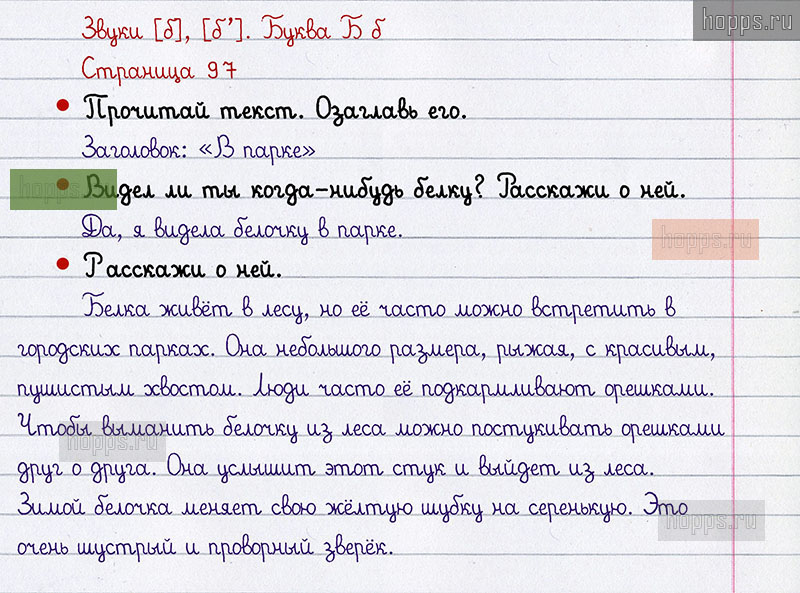 hopps.ru
Звуки [б], [б’]. Буква Б б
Страница 97
• Прочитай текст. Озаглавь его.
Заголовок: «В парке»
• Видел ли ты когда-нибудь белку? Расскажи о ней.
Да, я видела белочку в парке.
hopps.ru
• Расскажи о ней.
Белка живёт в лесу, но её часто можно встретить в
городских парках. Она небольшого размера, рыжая, с красивым,
пушистым хвостом. Люди часто её подкармливают орешками.
Чтобы выманить белочку из леса можно постукивать орешками
hopps.ru
друг о друга. Она услышит этот стук и выйдет из леса.
Зимой белочка меняет свою жёлтую шубку на серенькую. Это
hopps.ru
очень шустрый и проворный зверёк.